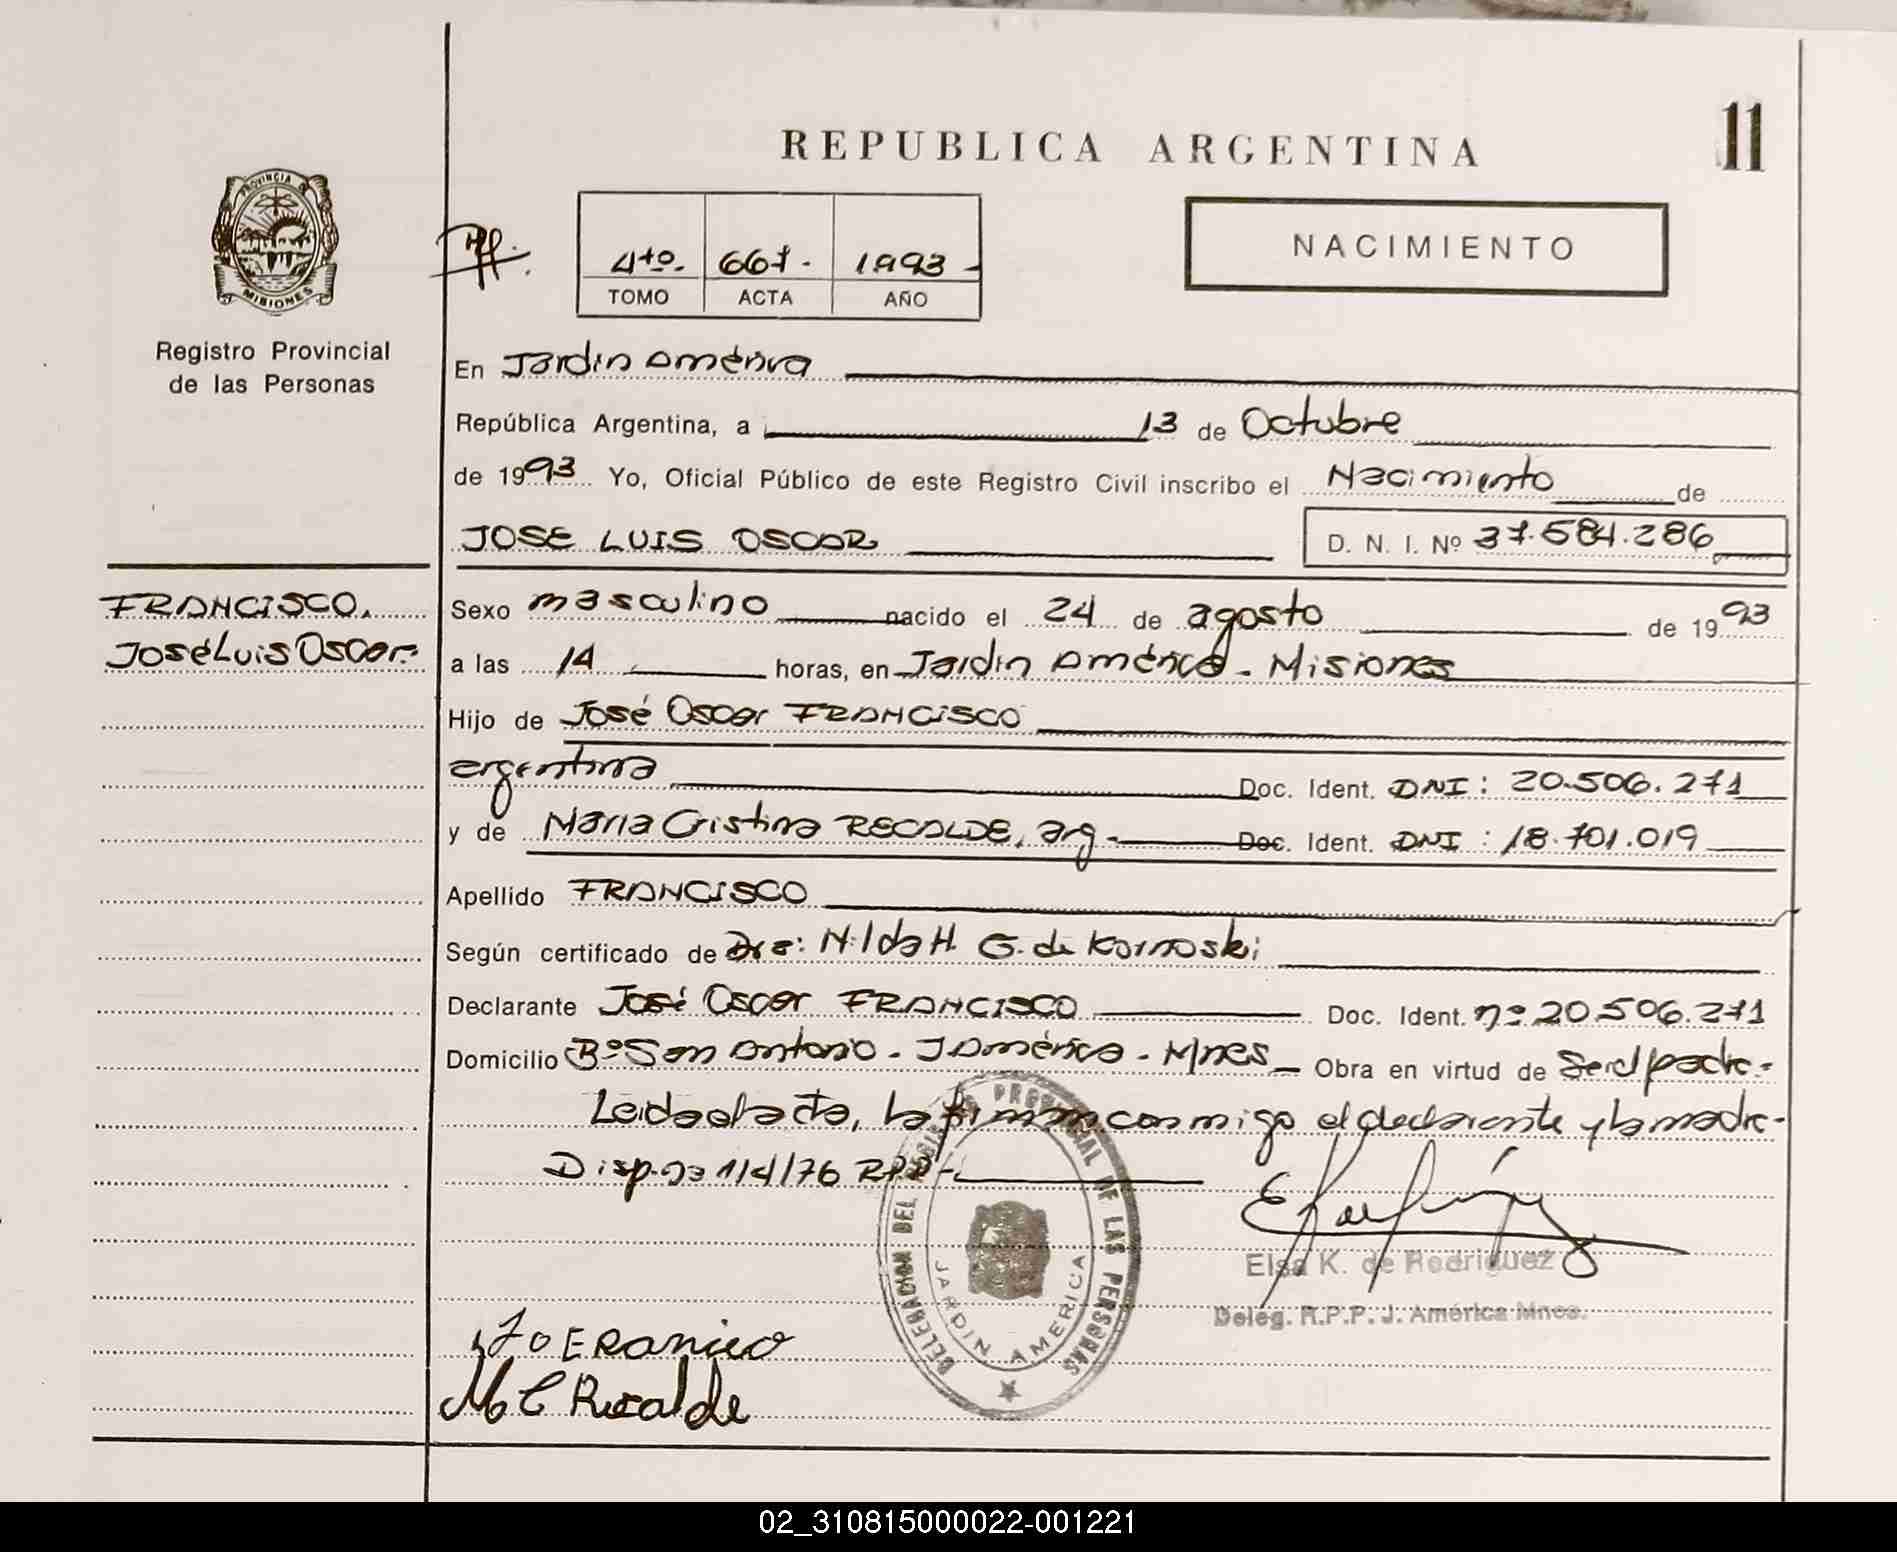 11
REPUBLICA ARGENTINA
PROVINCIA DE
MISIONES
Registro Provincial
de las Personas
4to. 667- 1993-
TOMO ACTA AÑO
NACIMIENTO
En Jardin América
República Argentina, a 13 de Octubre
de 1993 Yo, Oficial Público de este Registro Civil inscribo el Nacimiento de
JOSE LUIS OSCAR D. N. I. Nº 37.584.286
FRANCISCO,
José Luis Oscar-
Sexo masculino nacido el 24 de agosto de 1993
a las 14 horas, en Jardin América - Misiones
Hijo de José Oscar FRANCISCO
argentina Doc. Ident. DNI: 20.506.271
y de Maria Cristina RECALDE, arg- Doc. Ident. DNI: 18.701.019
Apellido FRANCISCO
Según certificado de Dra: Nilda H. G. de Kornoski
Declarante José Oscar FRANCISCO Doc. Ident. nº 20.506.271
Domicilio Bº San Antonio - J América - Mnes Obra en virtud de Ser el padre-
Leida el acta, la firman conmigo el declarante y la madre-
Disp. nº 1/4/76 RPP-
DELEGACION DEL REGISTRO PROVINCIAL DE LAS PERSONAS
JARDIN AMERICA
Elsa K. de Rodriguez
Deleg. R.P.P. J. América Mnes.
M C Recalde
02_310815000022-001221